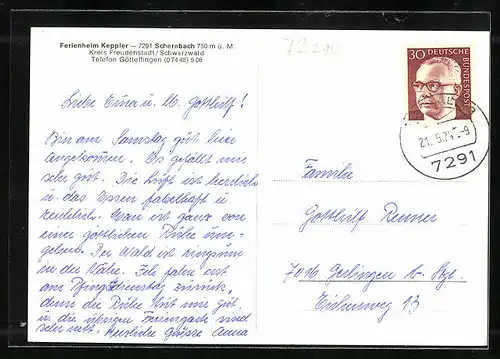 Ferienheim Keppler – 7291 Schernbach 750 m ü. M.
Kreis Freudenstadt / Schwarzwald
Telefon Göttelfingen (07448) 506
72290
30 DEUTSCHE
BUNDESPOST
21.5.74-9
7291
Liebe Erna u. M. Gotthilf!
Bin am Samstag gut hier
angekommen. Es gefällt mir
sehr gut. Die Luft ist herrlich
u. das Essen fabelhaft u.
reichlich. Man ist ganz von
einer göttlichen Ruhe um-
geben. Der Wald ist ringsum
in der Nähe. Ich fahre erst
am Pfingstdienstag zurück,
denn die Ruhe tut mir gut
u. die übrigen Feriengäste sind
sehr nett. Herzliche Grüsse Anna
Familie
Gotthilf Renner
7016 Gerlingen b. Stgt.
Eichenweg 13